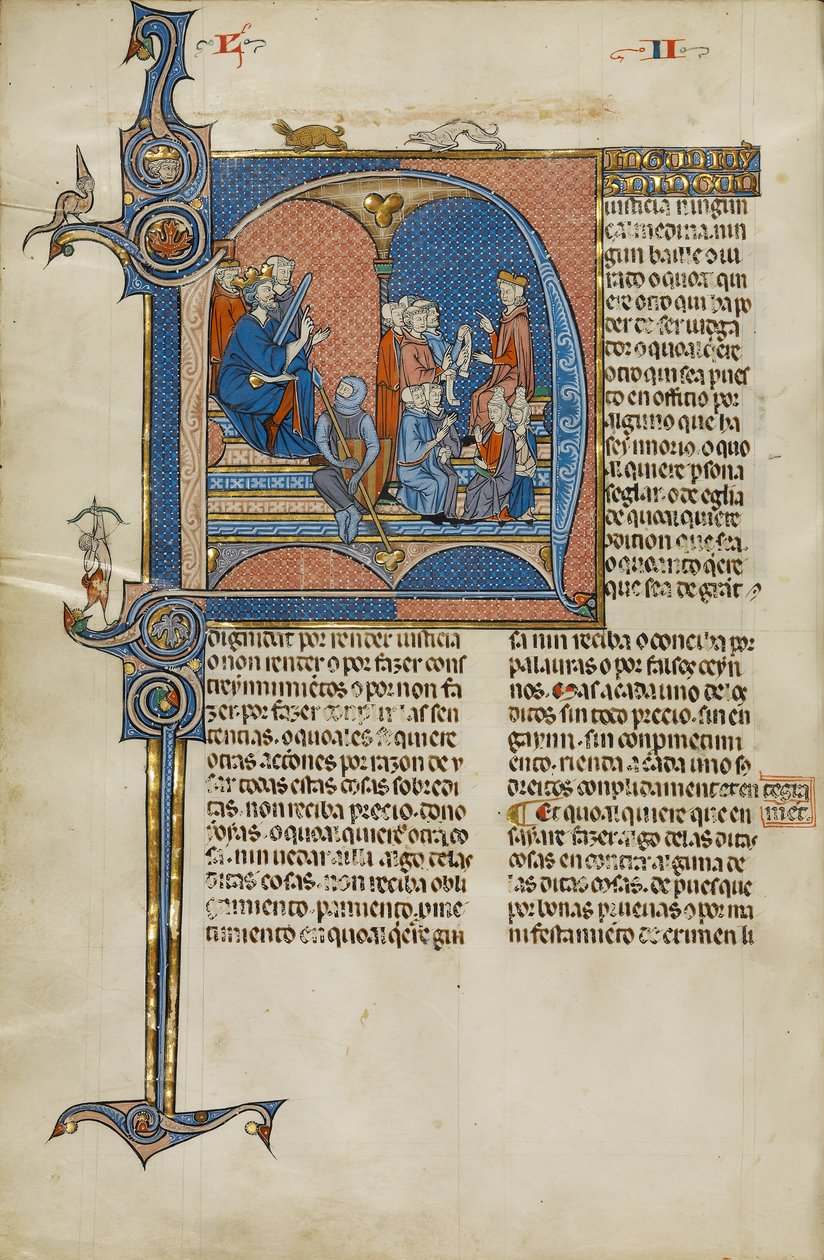 L II
NINGUN IUY
Z NINGUN
iusticia ningun
çalmedina nin
gun baille o iu
rado o quoal qui
ere otro qui ha po
der de ser iudga
dor o quoal q̃ere
otro qui sea pues
to en officio por
alguno que ha
seynnorio. o quo
al quiere p̃sona
seglar. o de eglia
de quoal quiere
9dition que sea.
o quanto q̃ere
que sea de grāt
dignidat por render iusticia
o non render o por fazer cons
treynnimiētos o por non fa
zer. por fazer conplir las sen
tencias. o quoales se quiere
otras actiones por razon de v
sar todas estas cosas sobredi
tas. non reciba precio. dono
ioyas. o quoal quiere otra co
sa. nin uedar a illi algo delas
ditas cosas. non reciba obli
gamiento. pamiento. p̃me
timiento en quoal q̃ere gui
sa nin reciba o conciba por
palauras o por falsos ceyn
nos. Mas a cada uno de los
ditos sin todo precio. sin en
gaynno. sin conp̃metimi
ento. rienda a cada uno so
dreitos conplidament et en tegra
mēt.
Et quoal quiere que en
sayare fazer algo delas ditas
cosas en contra alguna de
las ditas cosas. de pues que
por bonas prueuas o por ma
nifestamiēto de crimen li